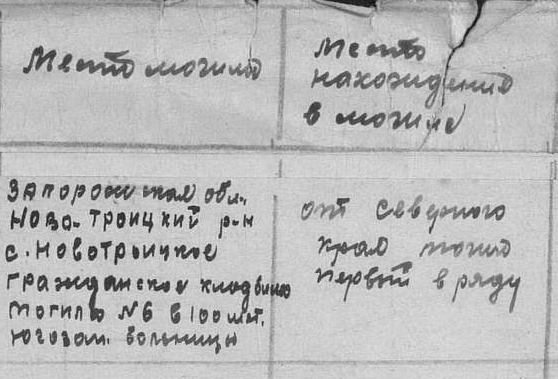 Место могила
Место
нахождения
в могиле
Запорожская обл.
Ново-Троицкий р-н
с. Новотроицкое
гражданское кладбище
могила №6 в 100 мет.
югозап. больницы
от северного
края могил
первый в ряду